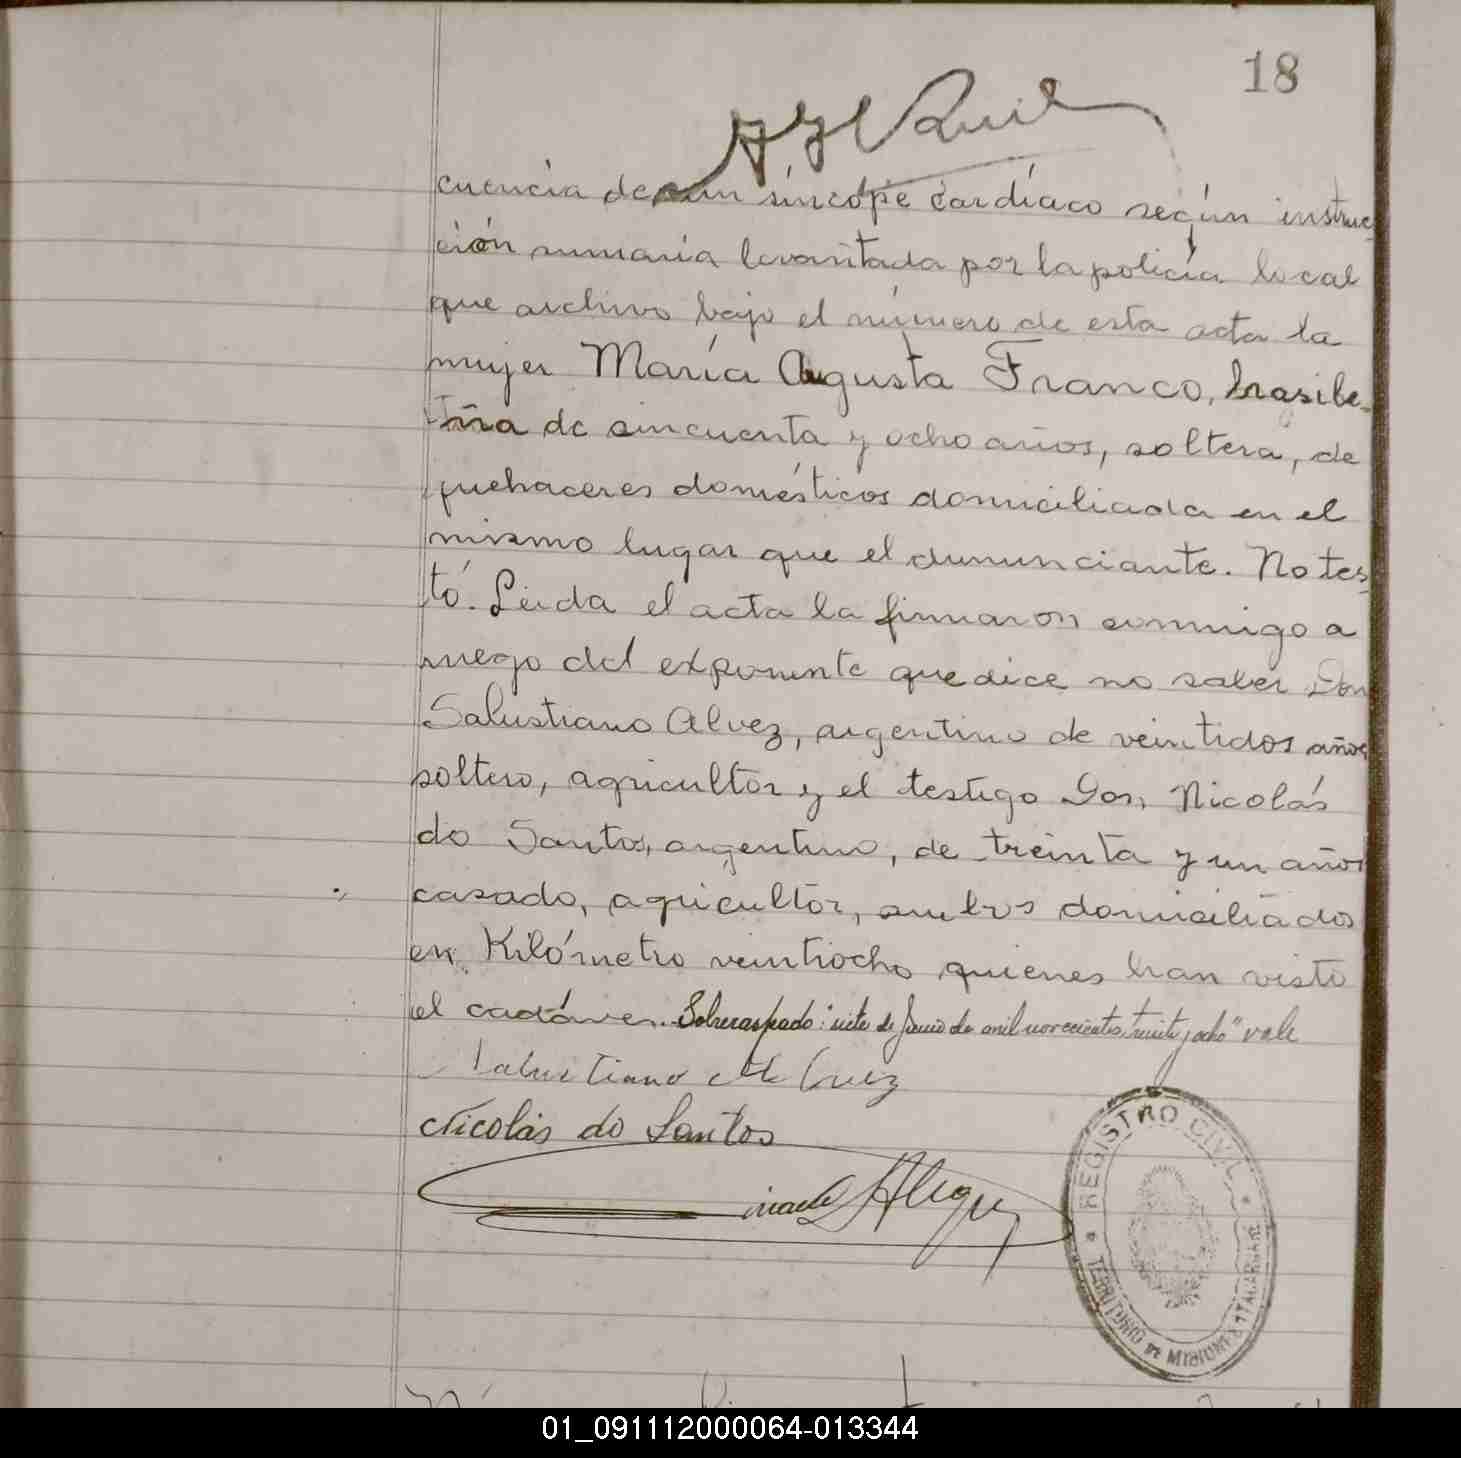 18
cuencia de un síncope cardíaco según instruc-
ción sumaria levantada por la policía local
que archivo bajo el número de esta acta la
mujer María Augusta Franco, brasile-
ña de cincuenta y ocho años, soltera, de
quehaceres domésticos domiciliada en el
mismo lugar que el denunciante. No tes-
tó. Leida el acta la firmaron conmigo a
ruego del exponente que dice no saber Don
Salustiano Alvez, argentino de veintidos años
soltero, agricultor y el testigo Don Nicolás
do Santos, argentino, de treinta y un años
casado, agricultor, ambos domiciliados
en Kilómetro veintiocho quienes han visto
el cadáver. Sobreraspado: "siete de Junio de mil novecientos treinta y ocho" vale
Salustiano
Nicolás do Santos
REGISTRO CIVIL
TERRITORIO DE MISIONES ITACARUARÉ
01_091112000064-013344